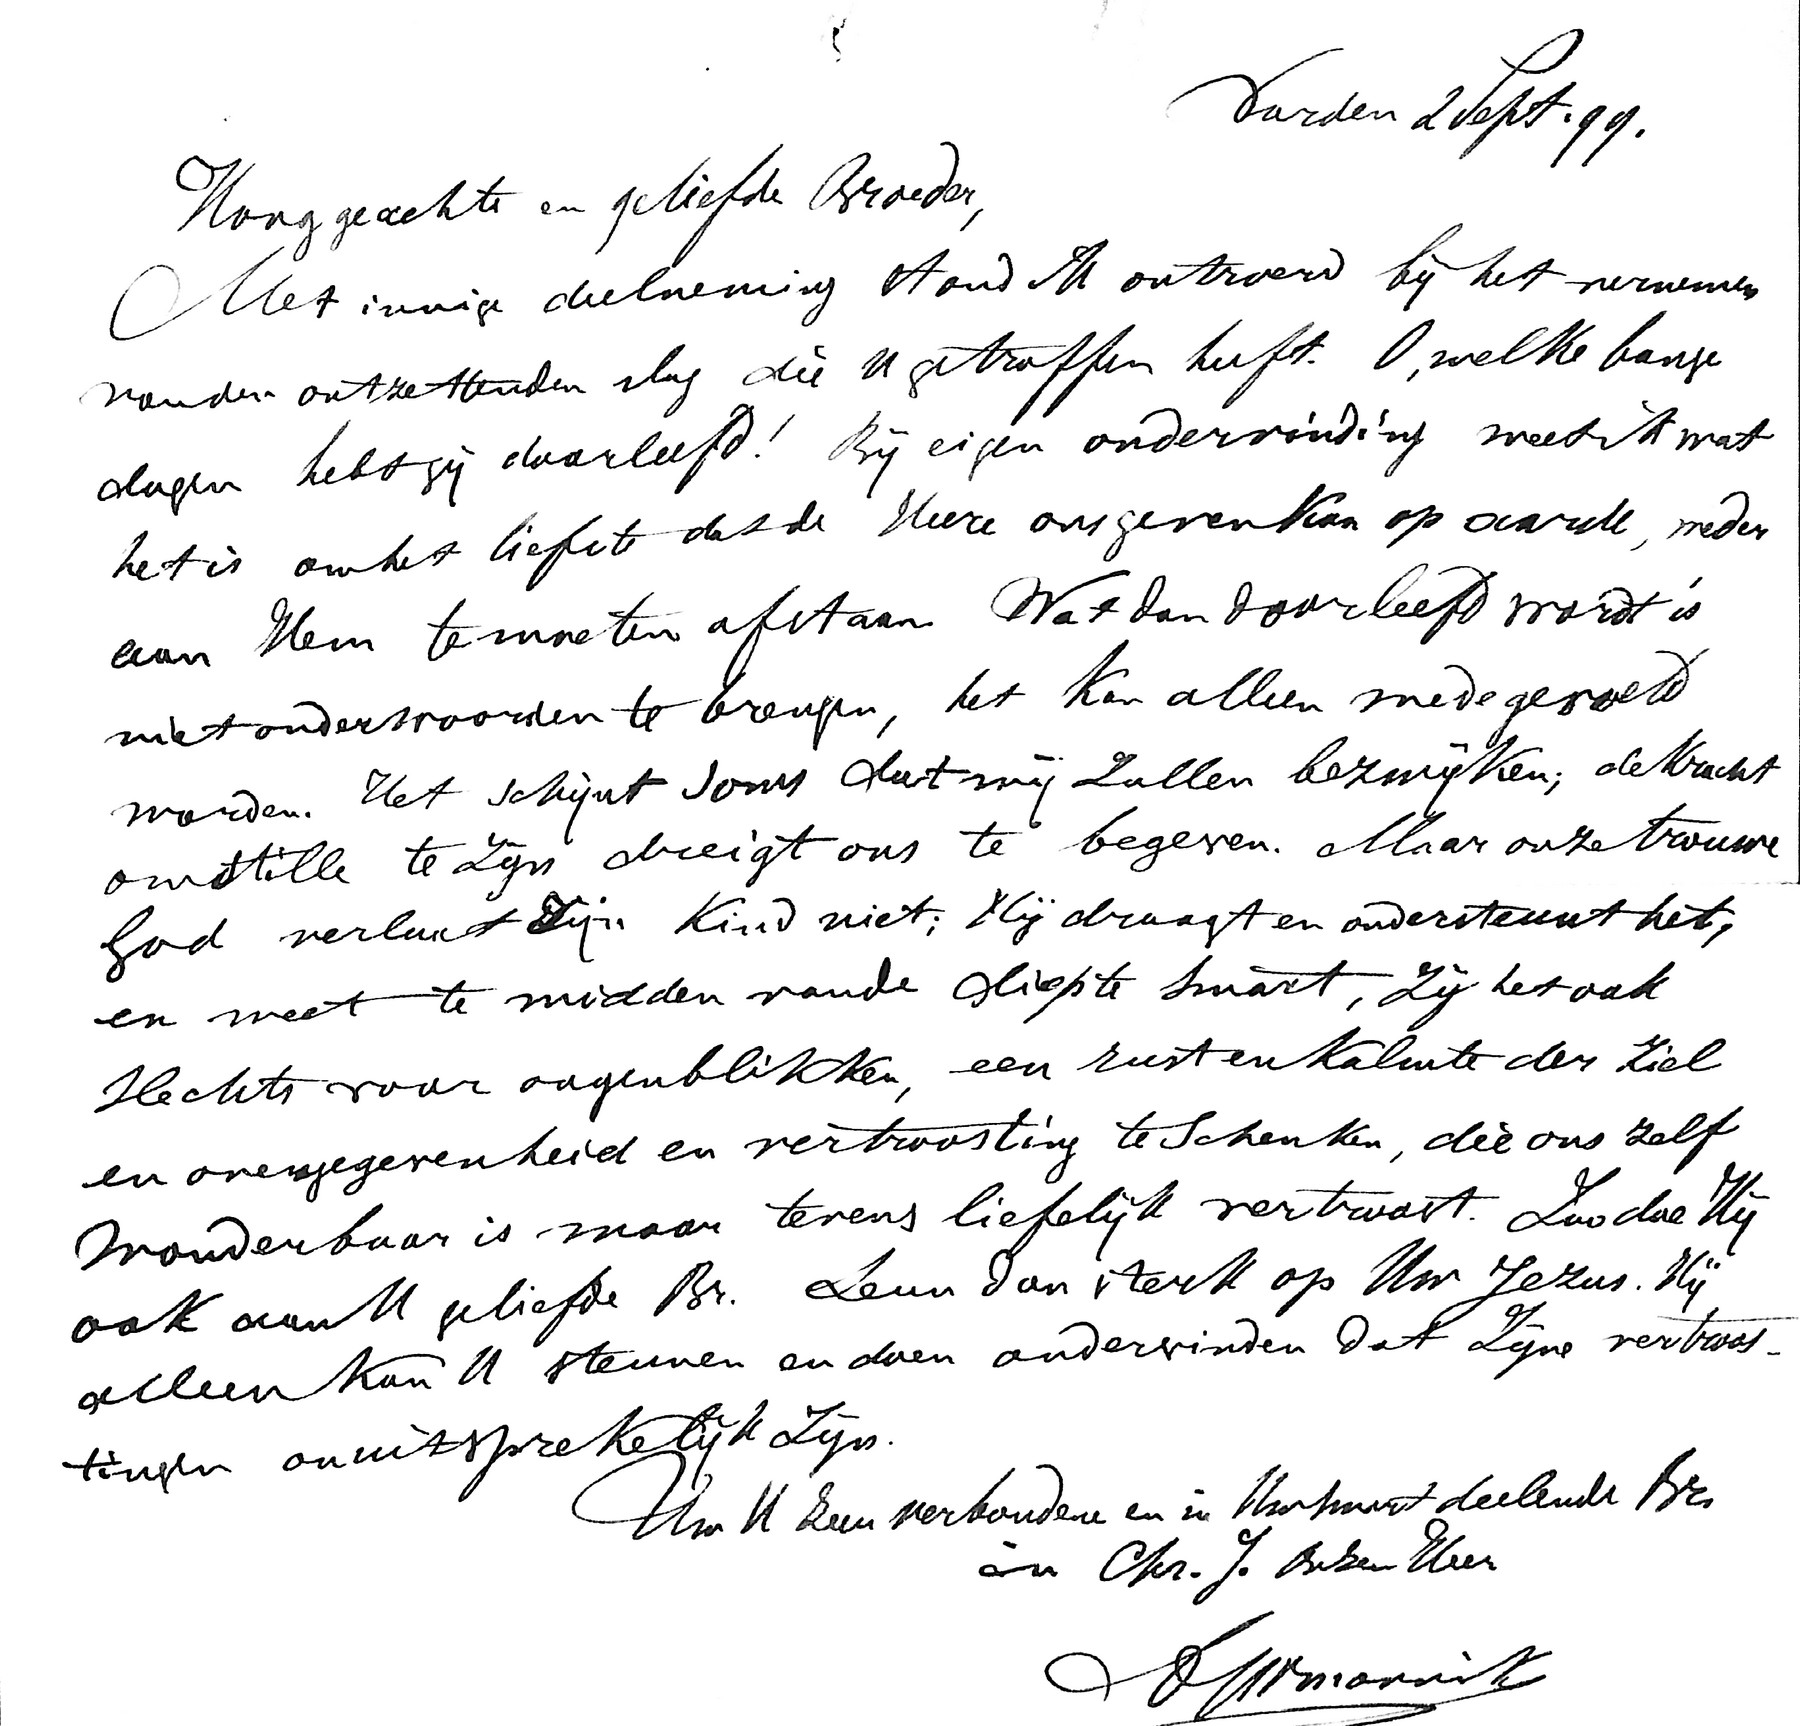 Vorden 2 Sept. 99.
Hooggeachte en geliefde Broeder,
Met innige deelneming stond ik ontroerd bij het vernemen
van den ontzettenden slag die U getroffen heeft. O, welke bange
dagen hebt gij doorleefd! Bij eigen ondervinding weet ik wat
het is om het liefste dat de Heere ons geven kan op aarde, weder
aan Hem te moeten afstaan. Wat dan doorleefd wordt is
niet onder woorden te brengen, het kan alleen medegevoeld
worden. Het schijnt soms dat wij zullen bezwijken; de kracht
om stille te zijn dreigt ons te begeven. Maar onze trouwe
God verlaat Zijn kind niet; Hij draagt en ondersteunt het,
en weet te midden van de diepste smart, zij het ook
slechts voor oogenblikken, een rust en kalmte der ziel
en overgegevenheid en vertroosting te schenken, die ons zelf
wonderbaar is maar tevens liefelijk vertroost. Zoo doe Hij
ook aan U geliefde Br. Leun dan sterk op Uw Jezus. Hij
alleen kan U steunen en doen ondervinden dat Zijne vertroos-
tingen onuitsprekelijk zijn.
Uw U zeer verbondene en in Uw smart deelende Br.
in Chr. J. onzen Heer